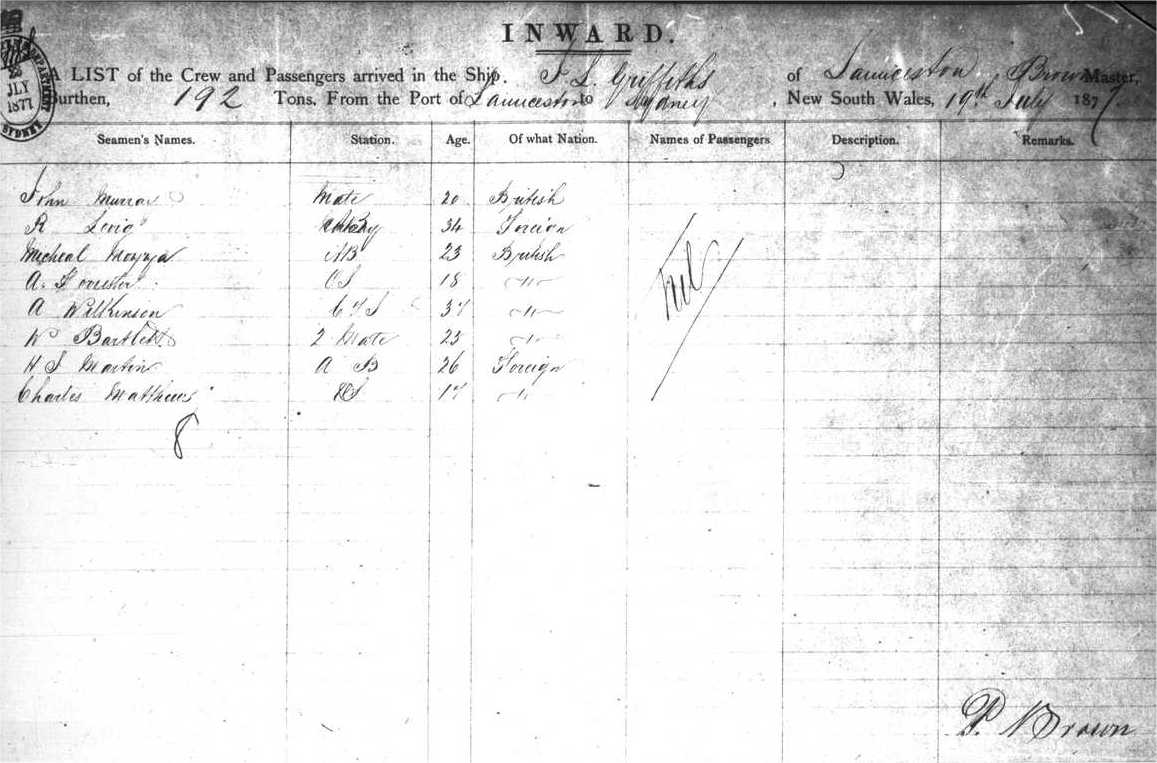 INWARD.
A LIST of the Crew and Passengers arrived in the Ship of Launceston Brown Master,
Burthen, 192 Tons. From the Port of Launceston to Sydney, New South Wales, 19th July 1877
JLY
1877
SYDNEY
Seamen's Names. Station. Age. Of what Nation. Names of Passengers Description. Remarks.
John Murray Mate 20 British
R 34 Foreign
Nil
Micheal AB 23 British
A. OS 18 -"-
A Wilkinson 37 -"-
W Bartlett 2 Mate 25 -"-
H S Martin A B 26 Foreign
Charles Matthews OS 17 -"-
8
P. Brown